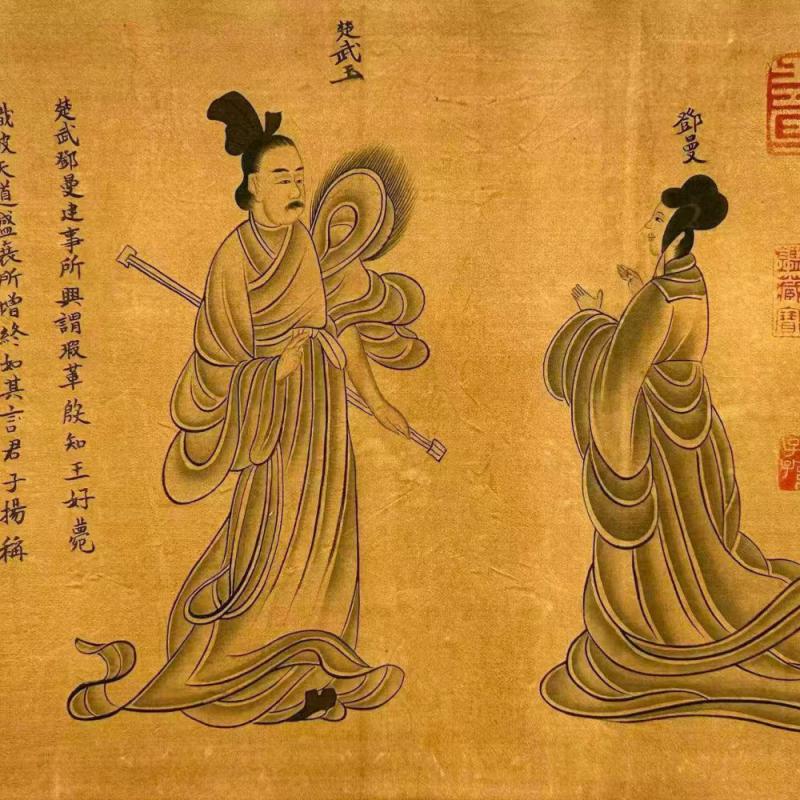 鑑藏寶
鄧曼
楚武王
楚武鄧曼建事所興謂瑕革殷知王好薨
識彼天道盛衰所增終如其言君子揚稱